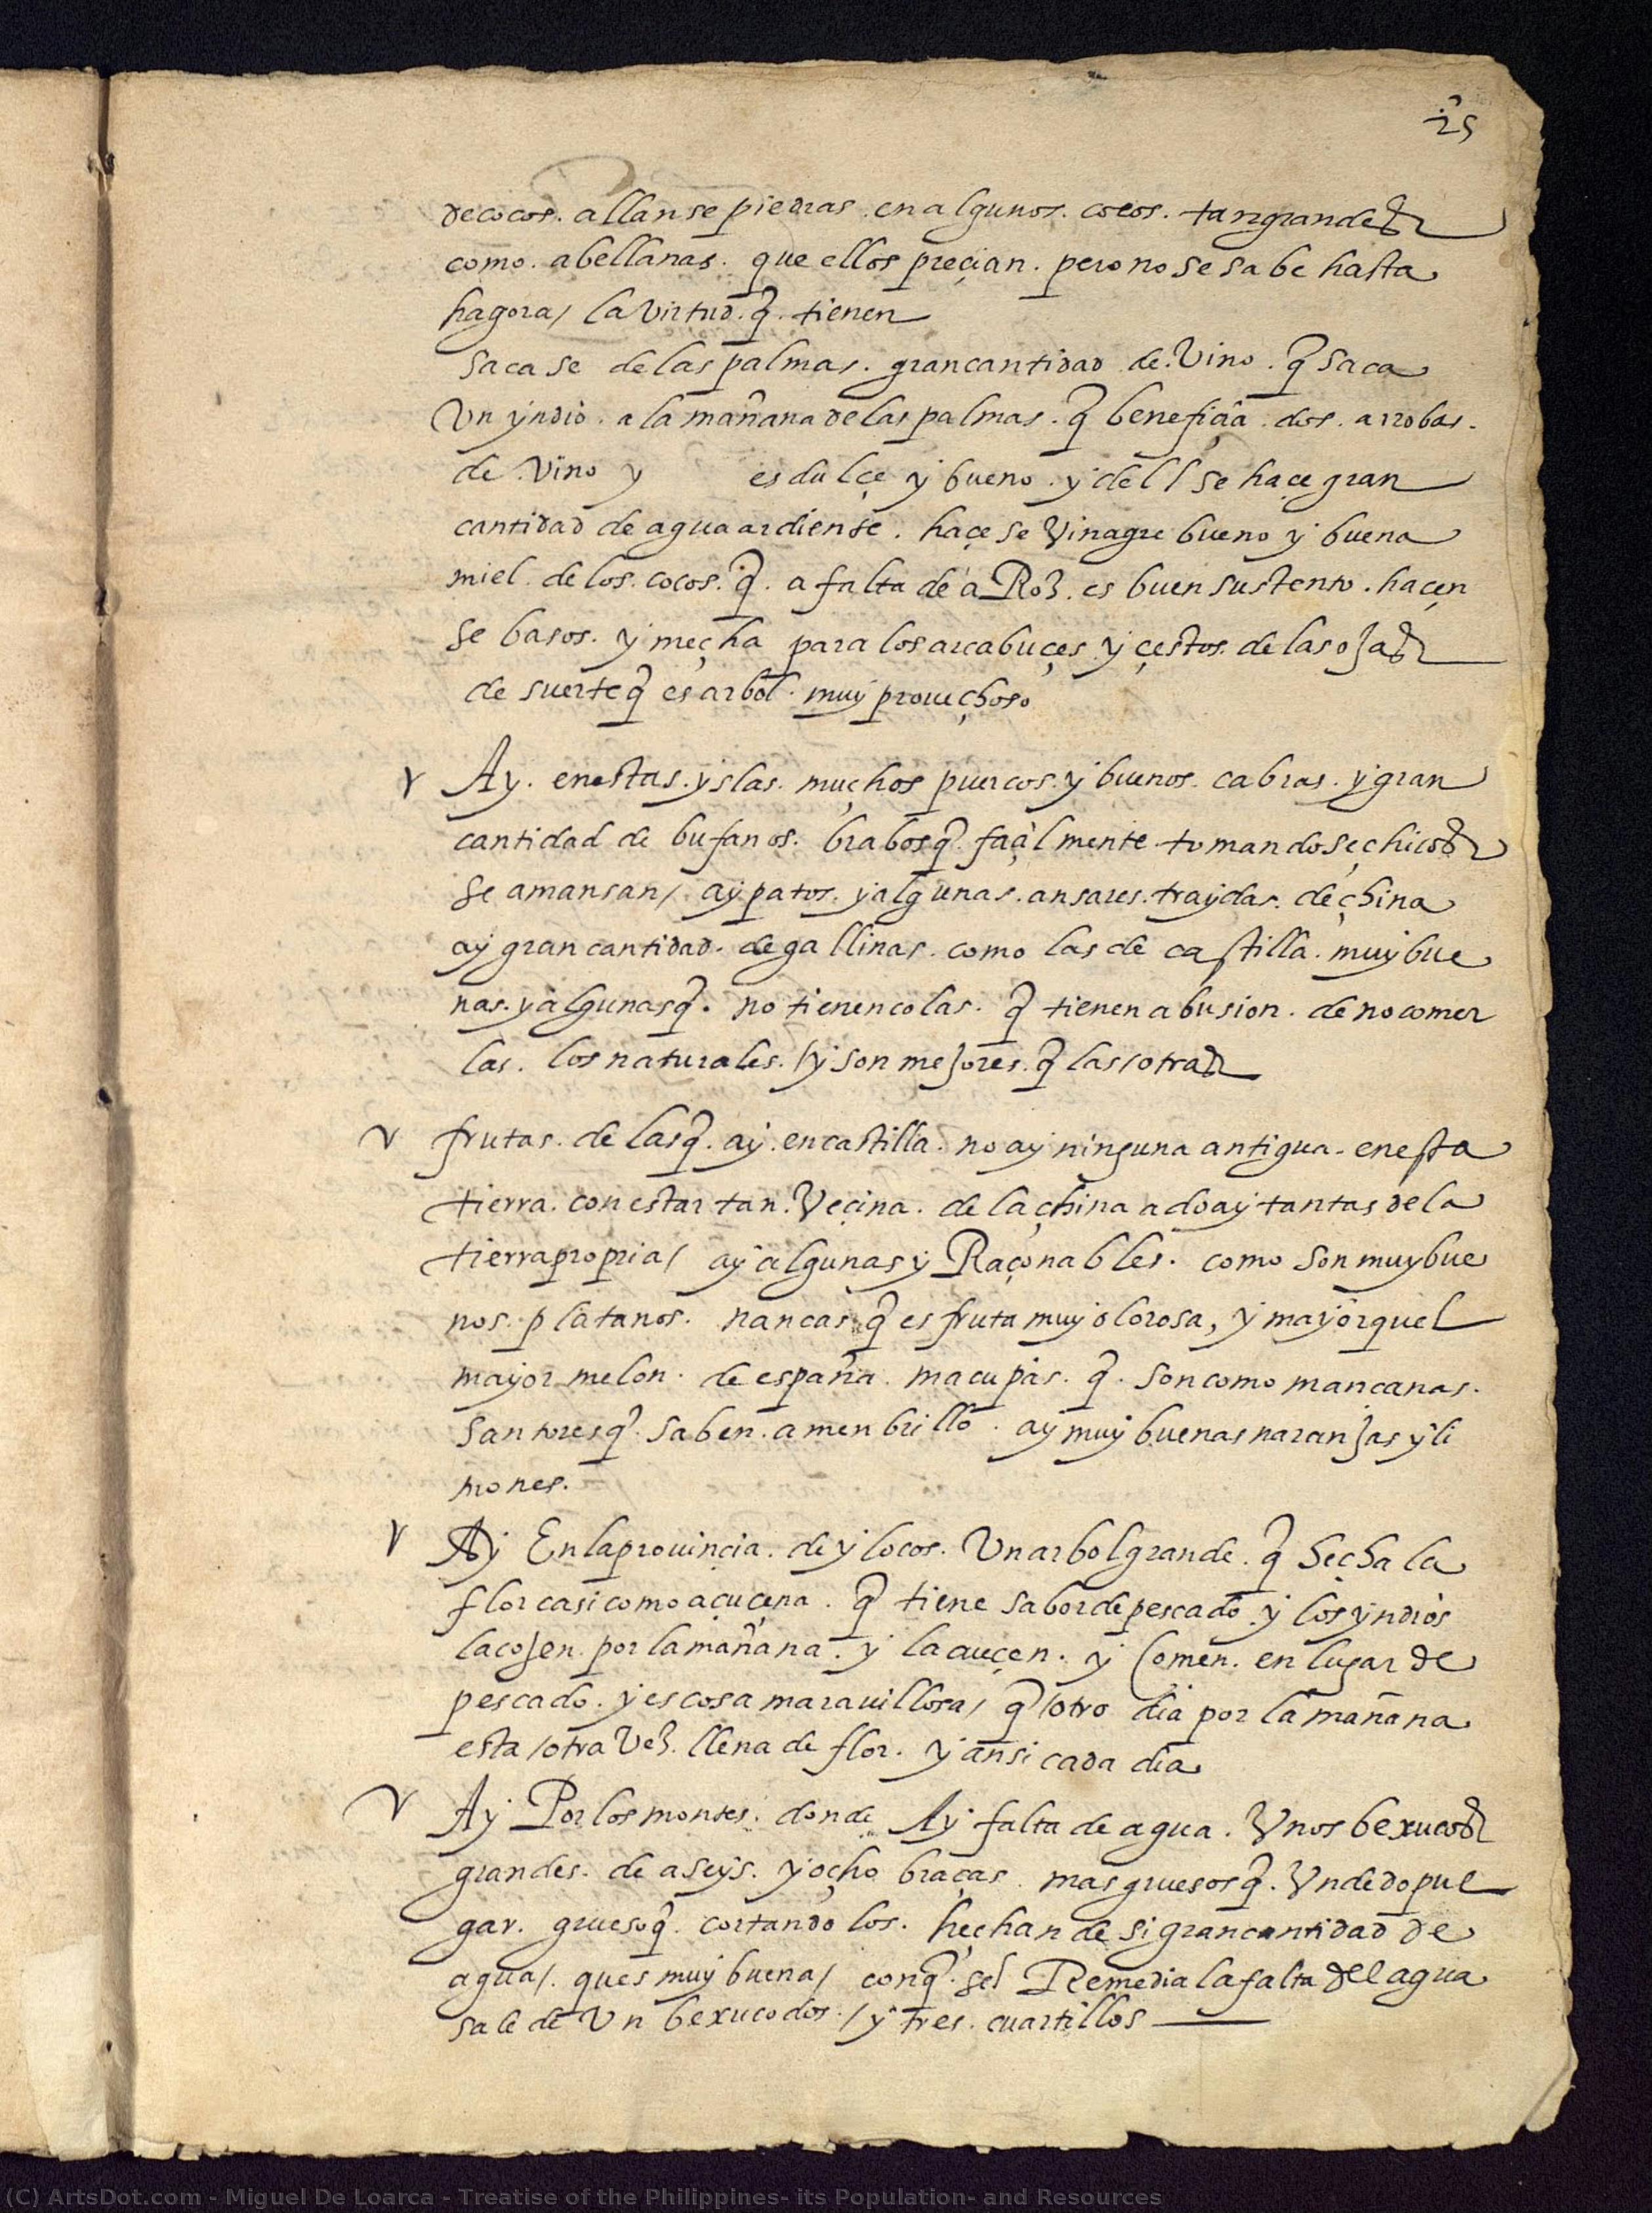 25
de cocos. allanse piedras en algunos. cocos. tan grandes
como. abellanas. que ellos preçian. pero no se sabe hasta
hagora / la virtud. q̃. tienen
saca se de las palmas. gran cantidad de. Vino. q̃ saca
Vn yndio. a la mañana de las palmas. q̃ benefiçia. dos. arrobas.
de. Vino y es dulçe y bueno. y dell se haçe gran
cantidad de agua ardiente. haçe se Vinagre bueno y buena
miel. de los. cocos. q̃. a falta de aRoz. es buen sustento. haçen
se basos. y meçha para los arcabuçes y çestos. de las ojas
de suerte q̃ es arbol. muy prouechoso
Ay. en estas. yslas. muçhos puercos. y buenos. cabras. y gran
cantidad de bufanos. brabos q̃. façilmente tomandose chicos
se amansan / ay patos. y algunas. ansares. traydas. de çhina
ay gran cantidad. de gallinas. como las de castilla. muy bue
nas. y algunas q̃. no tienen colas. q̃ tienen abusion. de no comer
las. los naturales. / y son mejores. q̃ las / otras
frutas. de las q̃. ay. en castilla. no ay ninguna antigua. en esta
tierra. con estar tan. Veçina. de la çhina ado ay tantas de la
tierra propria / ay algunas y Raçonables. como son muy bue
nos. platanos. nancas q̃ es fruta muy olorosa, y mayor quel
mayor melon. de españa. macupas. q̃. son como mancanas.
santores q̃. saben. a menbrillo. ay muy buenas naranjas y li
mones.
Ay En la prouinçia. de ylocos. Vn arbol grande. q̃ heçha la
flor casi como açuçena. q̃ tiene sabor de pescado. y los yndios
la cojen. por la mañana. y la cueçen. y comen. en lugar de
pescado. y es cosa marauillosa / q̃ / otro dia por la mañana
esta / otra Vez. llena de flor. y ansi cada dia
Ay Por los montes. donde Ay falta de agua. Vnos bexucos
grandes. de a seys. y oçho braças mas gruesos q̃. Vn dedo pul
gar. grueso q̃. cortando los. hechan de si gran cantidad de
agua /. ques muy buena / con q̃. se Remedia la falta del agua
sale de Vn bexuco dos. / y tres. cuartillos
(C) ArtsDot.com - Miguel De Loarca - Treatise of the Philippines- its Population- and Resources